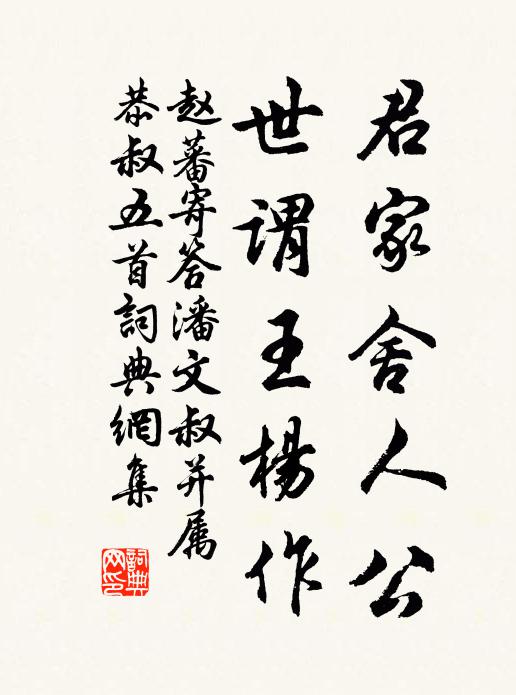 君家舍人公
世谓王楊作
赵蕃寄答潘文叔并属
恭叔五首詞典網集
詞典網印